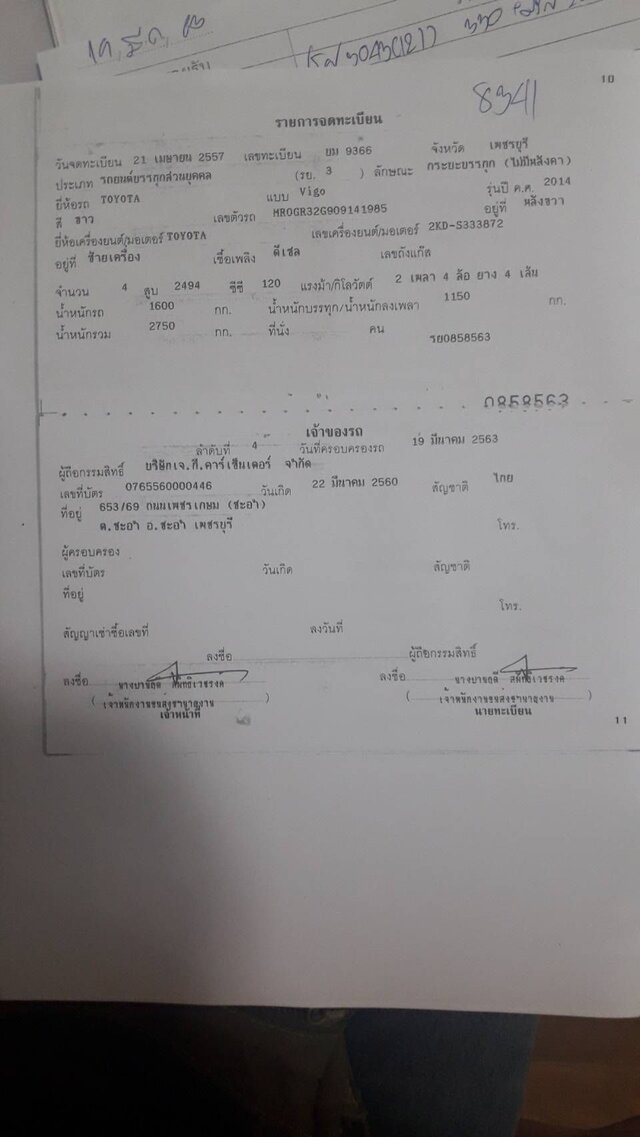 10
8341
รายการจดทะเบียน
วันจดทะเบียน 21 เมษายน 2557 เลขทะเบียน ยม 9366 จังหวัด เพชรบุรี
ประเภท รถยนต์บรรทุกส่วนบุคคล (รย. 3 ) ลักษณะ กระยะบรรทุก (ไม่มีหลังคา)
ยี่ห้อรถ TOYOTA แบบ Vigo รุ่นปี ค.ศ. 2014
สี ขาว เลขตัวรถ MR0GR32G909141985 อยู่ที่ หลังขวา
ยี่ห้อเครื่องยนต์/มอเตอร์ TOYOTA เลขเครื่องยนต์/มอเตอร์ 2KD-S333872
อยู่ที่ ซ้ายเครื่อง เชื้อเพลิง ดีเซล เลขถังแก๊ส
จำนวน 4 สูบ 2494 ซีซี 120 แรงม้า/กิโลวัตต์ 2 เพลา 4 ล้อ ยาง 4 เส้น
น้ำหนักรถ 1600 กก. น้ำหนักบรรทุก/น้ำหนักลงเพลา 1150 กก.
น้ำหนักรวม 2750 กก. ที่นั่ง คน
รย0858563
0858563
เจ้าของรถ
ลำดับที่ 4 วันที่ครอบครองรถ 19 มีนาคม 2563
ผู้ถือกรรมสิทธิ์ บริษัทเจ.ที.คาร์เซ็นเตอร์ จำกัด
เลขที่บัตร 0765560000446 วันเกิด 22 มีนาคม 2560 สัญชาติ ไทย
ที่อยู่ 653/69 ถนนเพชรเกษม (ชะอำ)
ต.ชะอำ อ.ชะอำ เพชรบุรี โทร.
ผู้ครอบครอง
เลขที่บัตร วันเกิด สัญชาติ
ที่อยู่
โทร.
สัญญาเช่าซื้อเลขที่ ลงวันที่
ลงชื่อ ผู้ถือกรรมสิทธิ์
ลงชื่อ ลงชื่อ
( เจ้าพนักงานขนส่งชำนาญงาน ) ( เจ้าพนักงานขนส่งชำนาญงาน )
เจ้าหน้าที่ นายทะเบียน
11